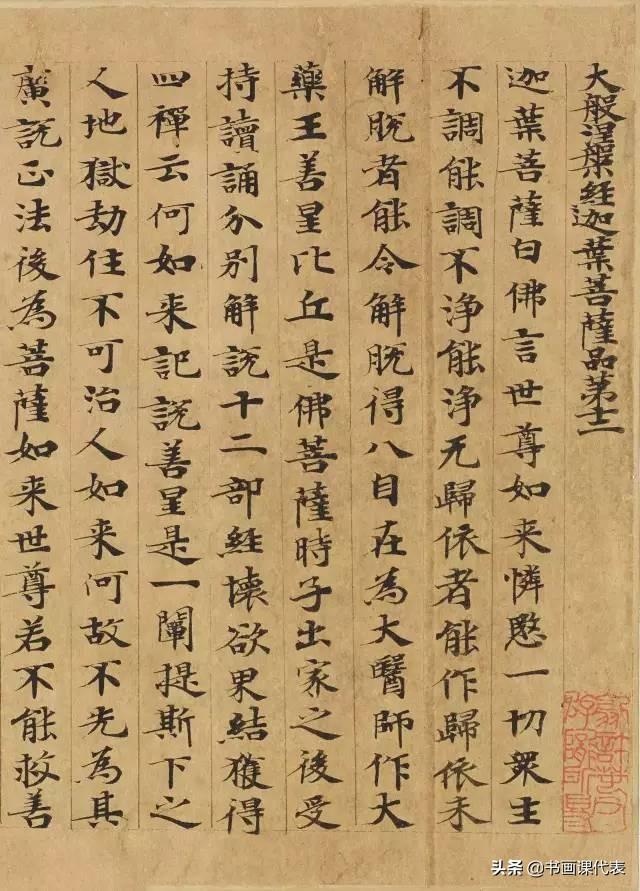 大般涅槃經迦葉菩薩品第十二
迦葉菩薩白佛言世尊如来憐愍一切衆生
不調能調不浄能浄无歸依者能作歸依未
解脫者能令解脫得八自在為大醫師作大
藥王善星比丘是佛菩薩時子出家之後受
持讀誦分别解說十二部經壞欲界結獲得
四禪云何如来記說善星是一闡提斯下之
人地獄劫住不可治人如来何故不先為其
廣說正法後為菩薩如来世尊若不能救善
头条@书画课代表